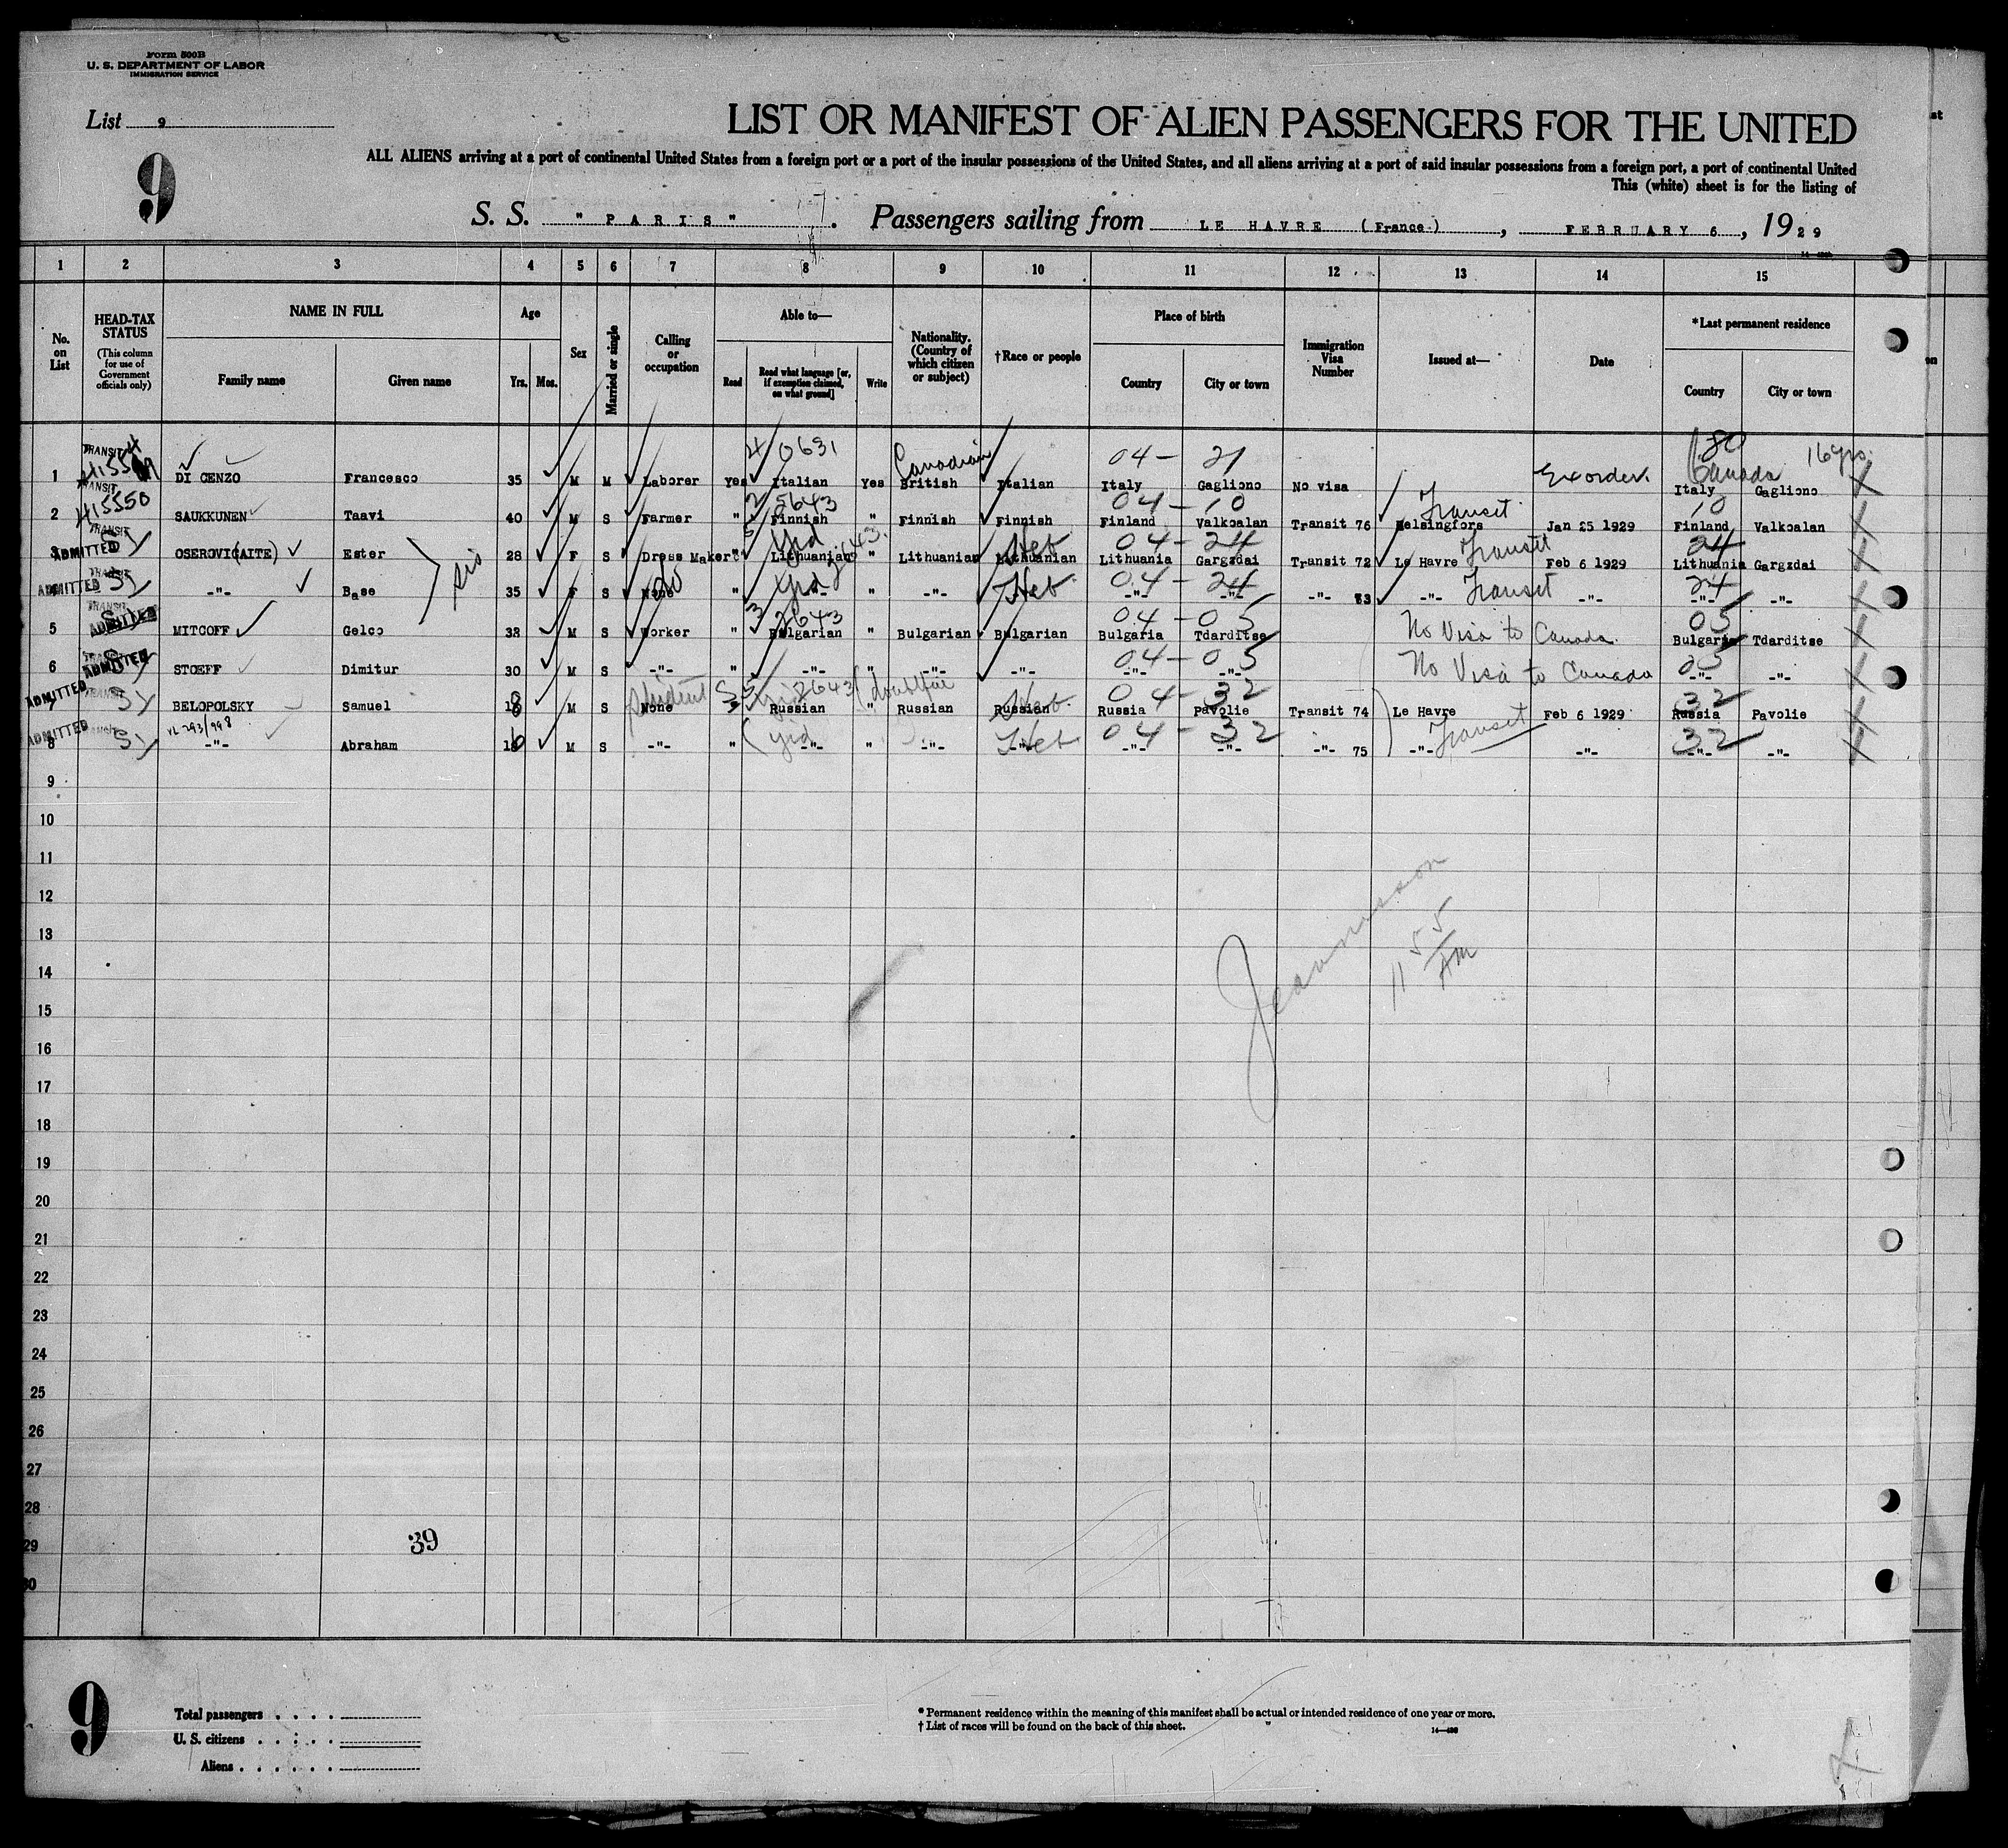 Form 500B
U. S. DEPARTMENT OF LABOR
IMMIGRATION SERVICE
List 9
9
LIST OR MANIFEST OF ALIEN PASSENGERS FOR THE UNITED
ALL ALIENS arriving at a port of continental United States from a foreign port or a port of the insular possessions of the United States, and all aliens arriving at a port of said insular possessions from a foreign port, a port of continental United
This (white) sheet is for the listing of
S. S. "PARIS". Passengers sailing from LE HAVRE (France), FEBRUARY 6, 1929
1 2 3 4 5 6 7 8 9 10 11 12 13 14 15
No. on List
HEAD-TAX STATUS (This column for use of Government officials only)
NAME IN FULL Family name Given name
Age Yrs. Mos.
Sex
Married or single
Calling or occupation
Able to— Read Read what language [or, if exemption claimed, on what ground] Write
Nationality. (Country of which citizen or subject)
†Race or people
Place of birth Country City or town
Immigration Visa Number
Issued at—
Date
*Last permanent residence Country City or town
TRANSIT 0631 Canadian 04- 21 80 16 yrs.
1 DI CENZO Francesco 35 M M Laborer Yes Italian Yes British Italian Italy Gagliono No visa Ex order. Canada Italy Gagliono
TRANSIT 415550 2643 04-10 Transit 10
2 SAUKKUNEN Taavi 40 M S Farmer " Finnish " Finnish Finnish Finland Valkoalan Transit 76 Helsingfors Jan 25 1929 Finland Valkoalan
TRANSIT ADMITTED Yid Heb 04-24 Transit 24
3 OSEROVIC(AITE) Ester sis 28 F S Dress Maker " Lithuanian " Lithuanian Lithuanian Lithuania Gargzdai Transit 72 Le Havre Feb 6 1929 Lithuania Gargzdai
ADMITTED TRANSIT Yid Heb 04-24 Transit 24
4 -"- Base 35 F S None " -"- " -"- -"- -"- -"- -"- 73 -"- -"- -"- -"-
TRANSIT ADMITTED 2643 04-05 No Visa to Canada 05
5 MITCOFF Gelco 33 M S Worker " Bulgarian " Bulgarian Bulgarian Bulgaria Tdarditse Bulgaria Tdarditse
TRANSIT ADMITTED 04-05 No Visa to Canada 05
6 STOEFF Dimitur 30 M S -"- " -"- " -"- -"- -"- -"- -"- -"-
ADMITTED TRANSIT student Yid 2643 doubtful Heb 04-32 32
7 BELOPOLSKY Samuel 18 M S None " Russian " Russian Russian Russia Pavolie Transit 74 Le Havre Feb 6 1929 Russia Pavolie
ADMITTED TRANSIT VL 293/998 Yid Heb 04-32 Transit 32
8 -"- Abraham 16 M S -"- " -"- " -"- -"- -"- -"- 75 -"- -"- -"- -"-
9
10
11
12
13
14
15
16
17
18
19
20
21
22
23
24
25
26
27
28
29
30
11 55 AM
39
9
Total passengers
U. S. citizens
Aliens
* Permanent residence within the meaning of this manifest shall be actual or intended residence of one year or more.
† List of races will be found on the back of this sheet.